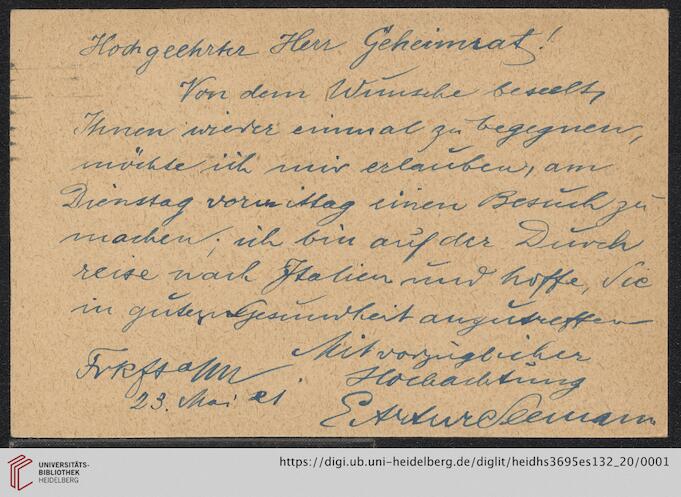 Hochgeehrter Herr Geheimrat!
Von dem Wunsche beseelt,
Ihnen wieder einmal zu begegnen,
möchte ich mir erlauben, am
Dienstag vormittag einen Besuch zu
machen; ich bin auf der Durch
reise nach Italien und hoffe, Sie
in guter Gesundheit anzutreffen
Mit vorzüglicher
Hochachtung
Frkf
23. Mai 21.
E Artur Seemann
UNIVERSITÄTS-
BIBLIOTHEK
HEIDELBERG
https://digi.ub.uni-heidelberg.de/diglit/heidhs3695es132_20/0001